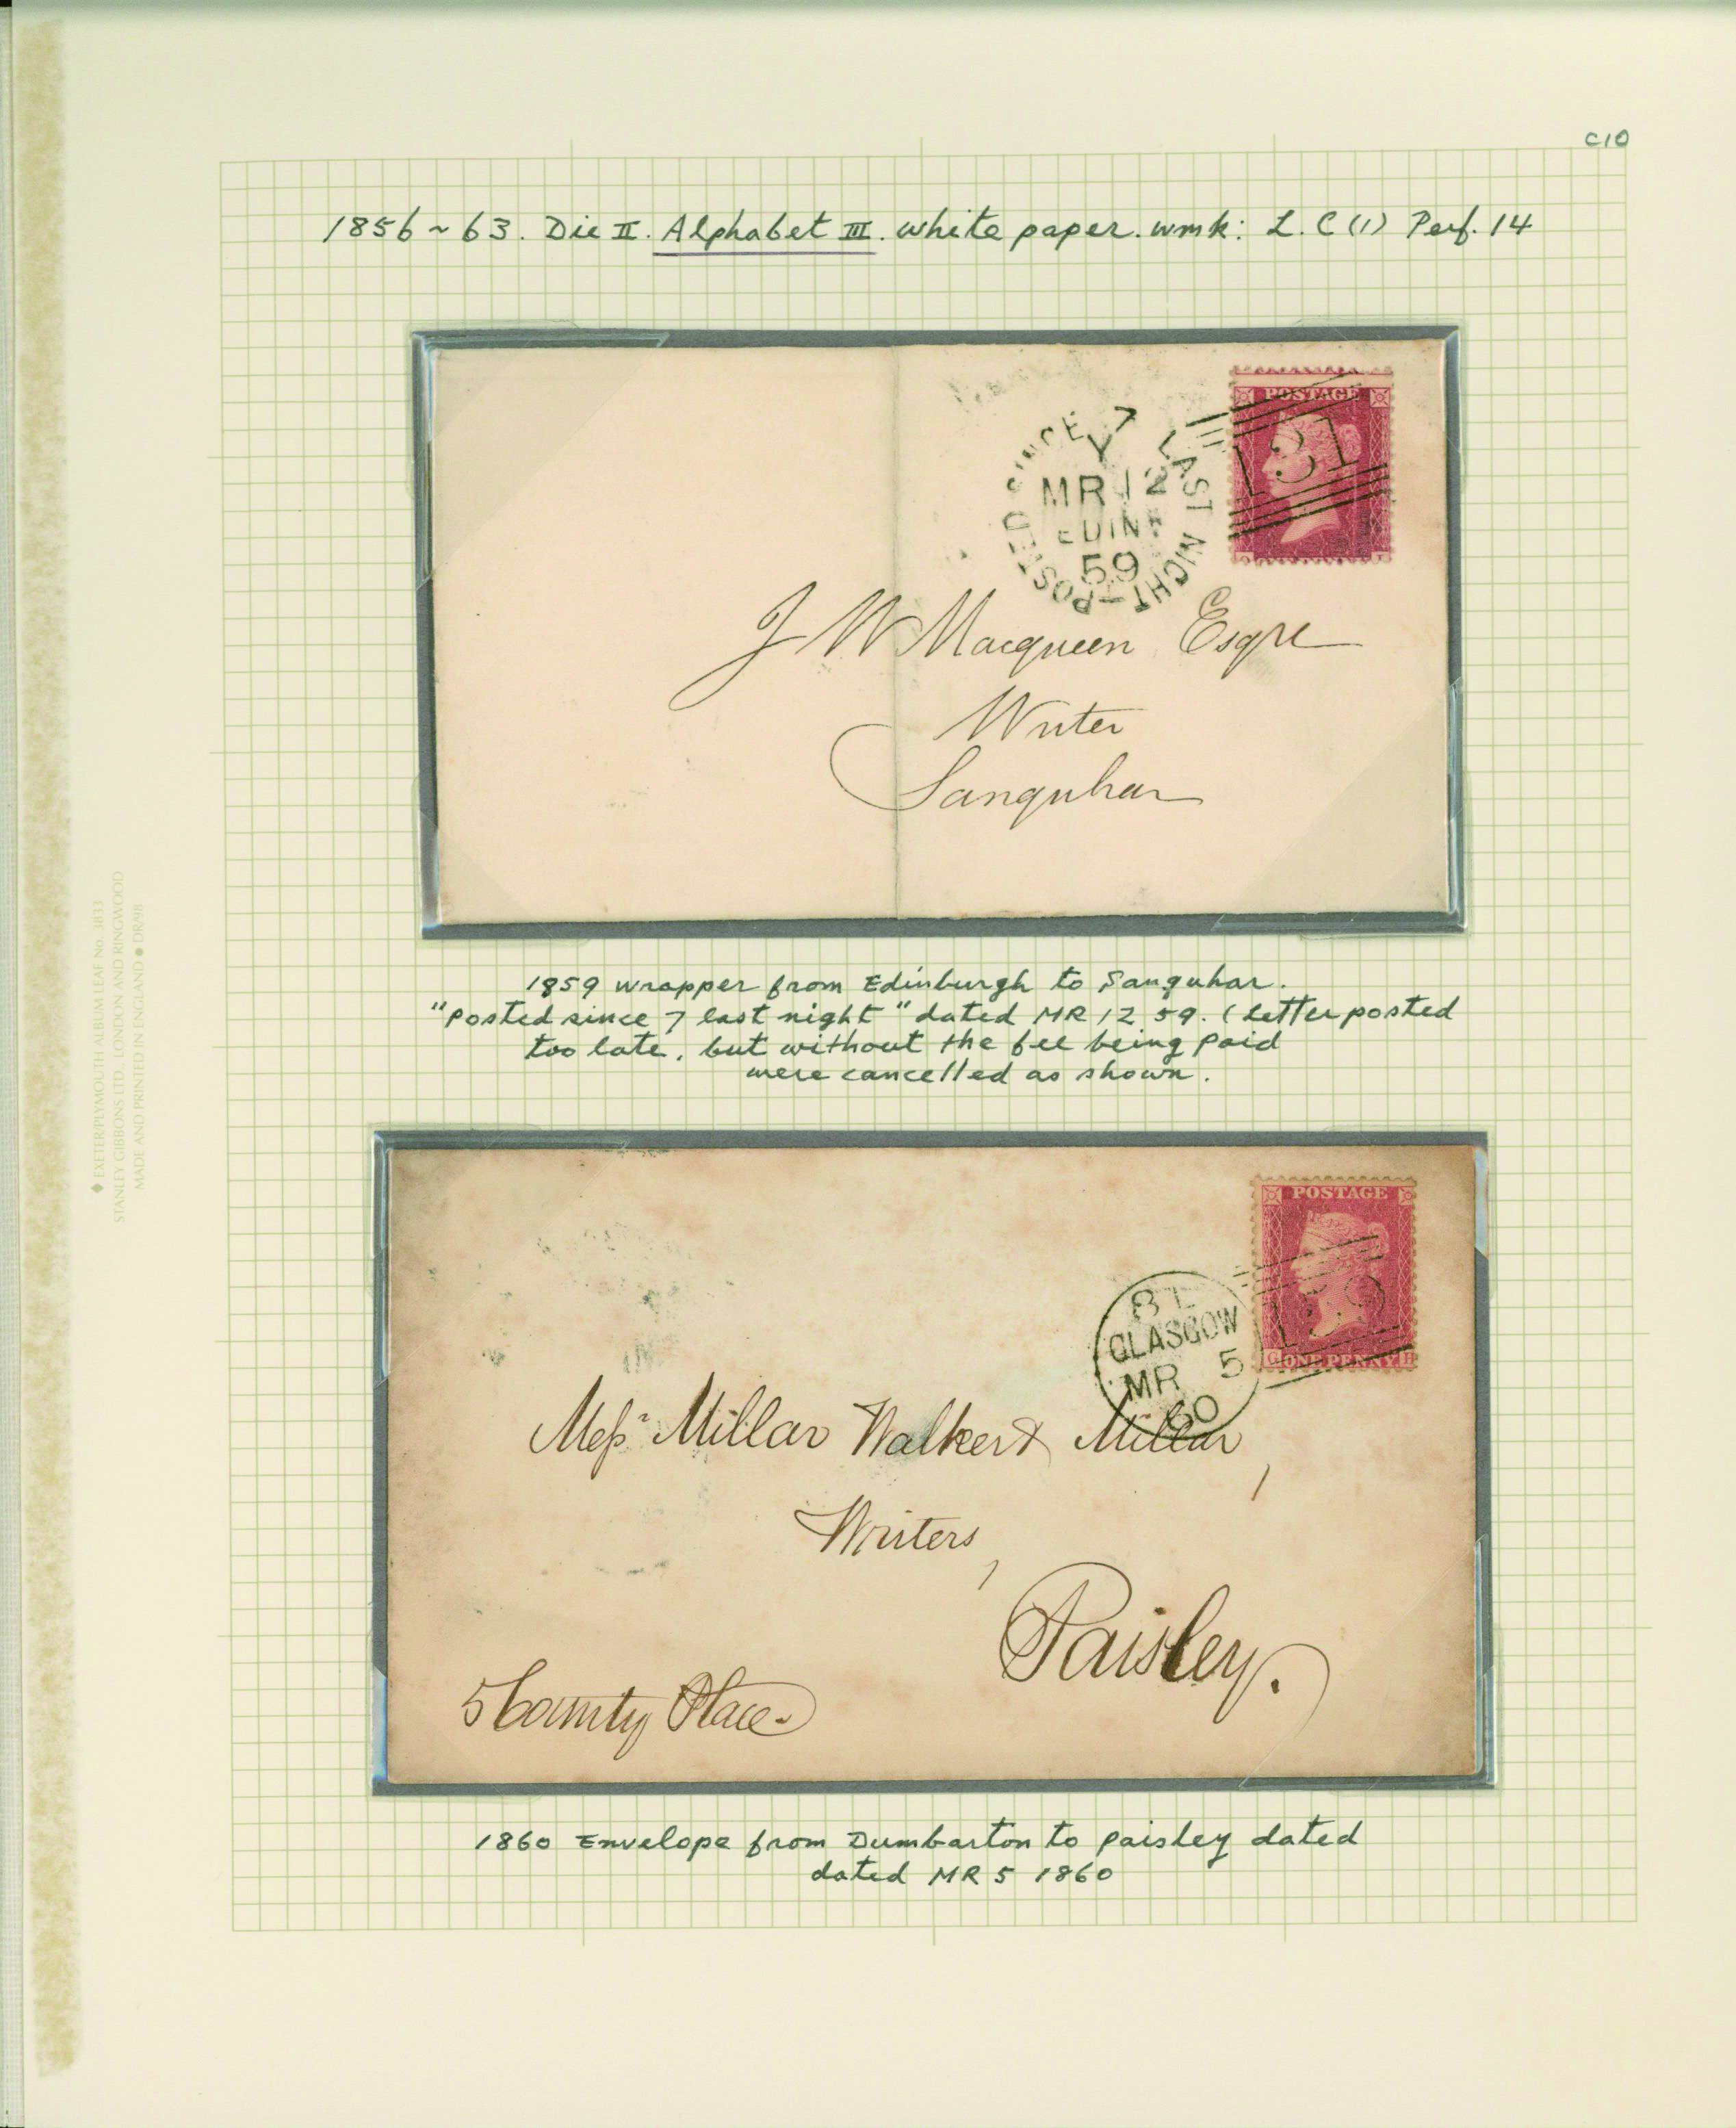 C10
1856~63. Die II. Alphabet III. white paper. wmk: L.C (1) Perf. 14
POSTED SINCE 7 LAST NIGHT
MR 12
EDINR
59
POSTAGE
131
J W Macqueen Esqre
Writer
Sanquhar
1859 wrapper from Edinburgh to Sanquhar.
"Posted since 7 last night" dated MR 12 59. (Letter posted
too late, but without the fee being paid
were cancelled as shown.
POSTAGE
159
G ONE PENNY H
GLASGOW
MR 5
60
Messrs Millar Walker & Millar,
Writers,
Paisley.
5 County Place
1860 Envelope from Dumbarton to Paisley dated
dated MR 5 1860
♦ EXETER/PLYMOUTH ALBUM LEAF No. 3833
STANLEY GIBBONS LTD., LONDON AND RINGWOOD
MADE AND PRINTED IN ENGLAND ● DR/98